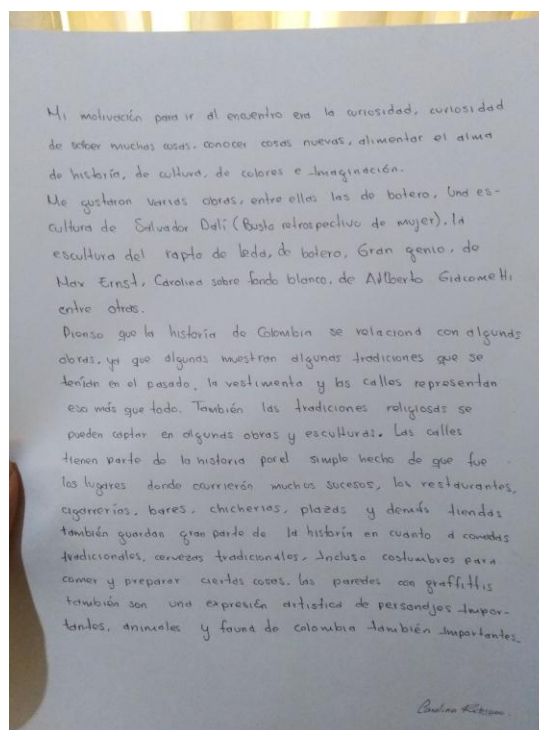 Mi motivación para ir al encuentro era la curiosidad, curiosidad
de saber muchas cosas, conocer cosas nuevas, alimentar el alma
de historia, de cultura, de colores e imaginación.
Me gustaron varias obras, entre ellas las de botero, Una es-
cultura de Salvador Dalí (Busto retrospectivo de mujer), la
escultura del rapto de leda, de botero, Gran genio, de
Max Ernst, Carolina sobre fondo blanco, de Adlberto Giacometti
entre otras.
Pienso que la historia de Colombia se relaciona con algunas
obras, ya que algunas muestran algunas tradiciones que se
tenían en el pasado, la vestimenta y las calles representan
eso más que todo. También las tradiciones religiosas se
pueden captar en algunas obras y esculturas. Las calles
tienen parte de la historia por el simple hecho de que fue
los lugares donde ocurrierón muchos sucesos, los restaurantes,
cigarrerías, bares, chicherias, plazas y demás tiendas
también guardan gran parte de la historia en cuanto a comidas
tradicionales, cervezas tradicionales, Incluso costumbres para
comer y preparar ciertas cosas. las paredes con graffittis
también son una expresión artistica de personajes Impor-
tantes, animales y fauna de colombia también Importantes.
Carolina